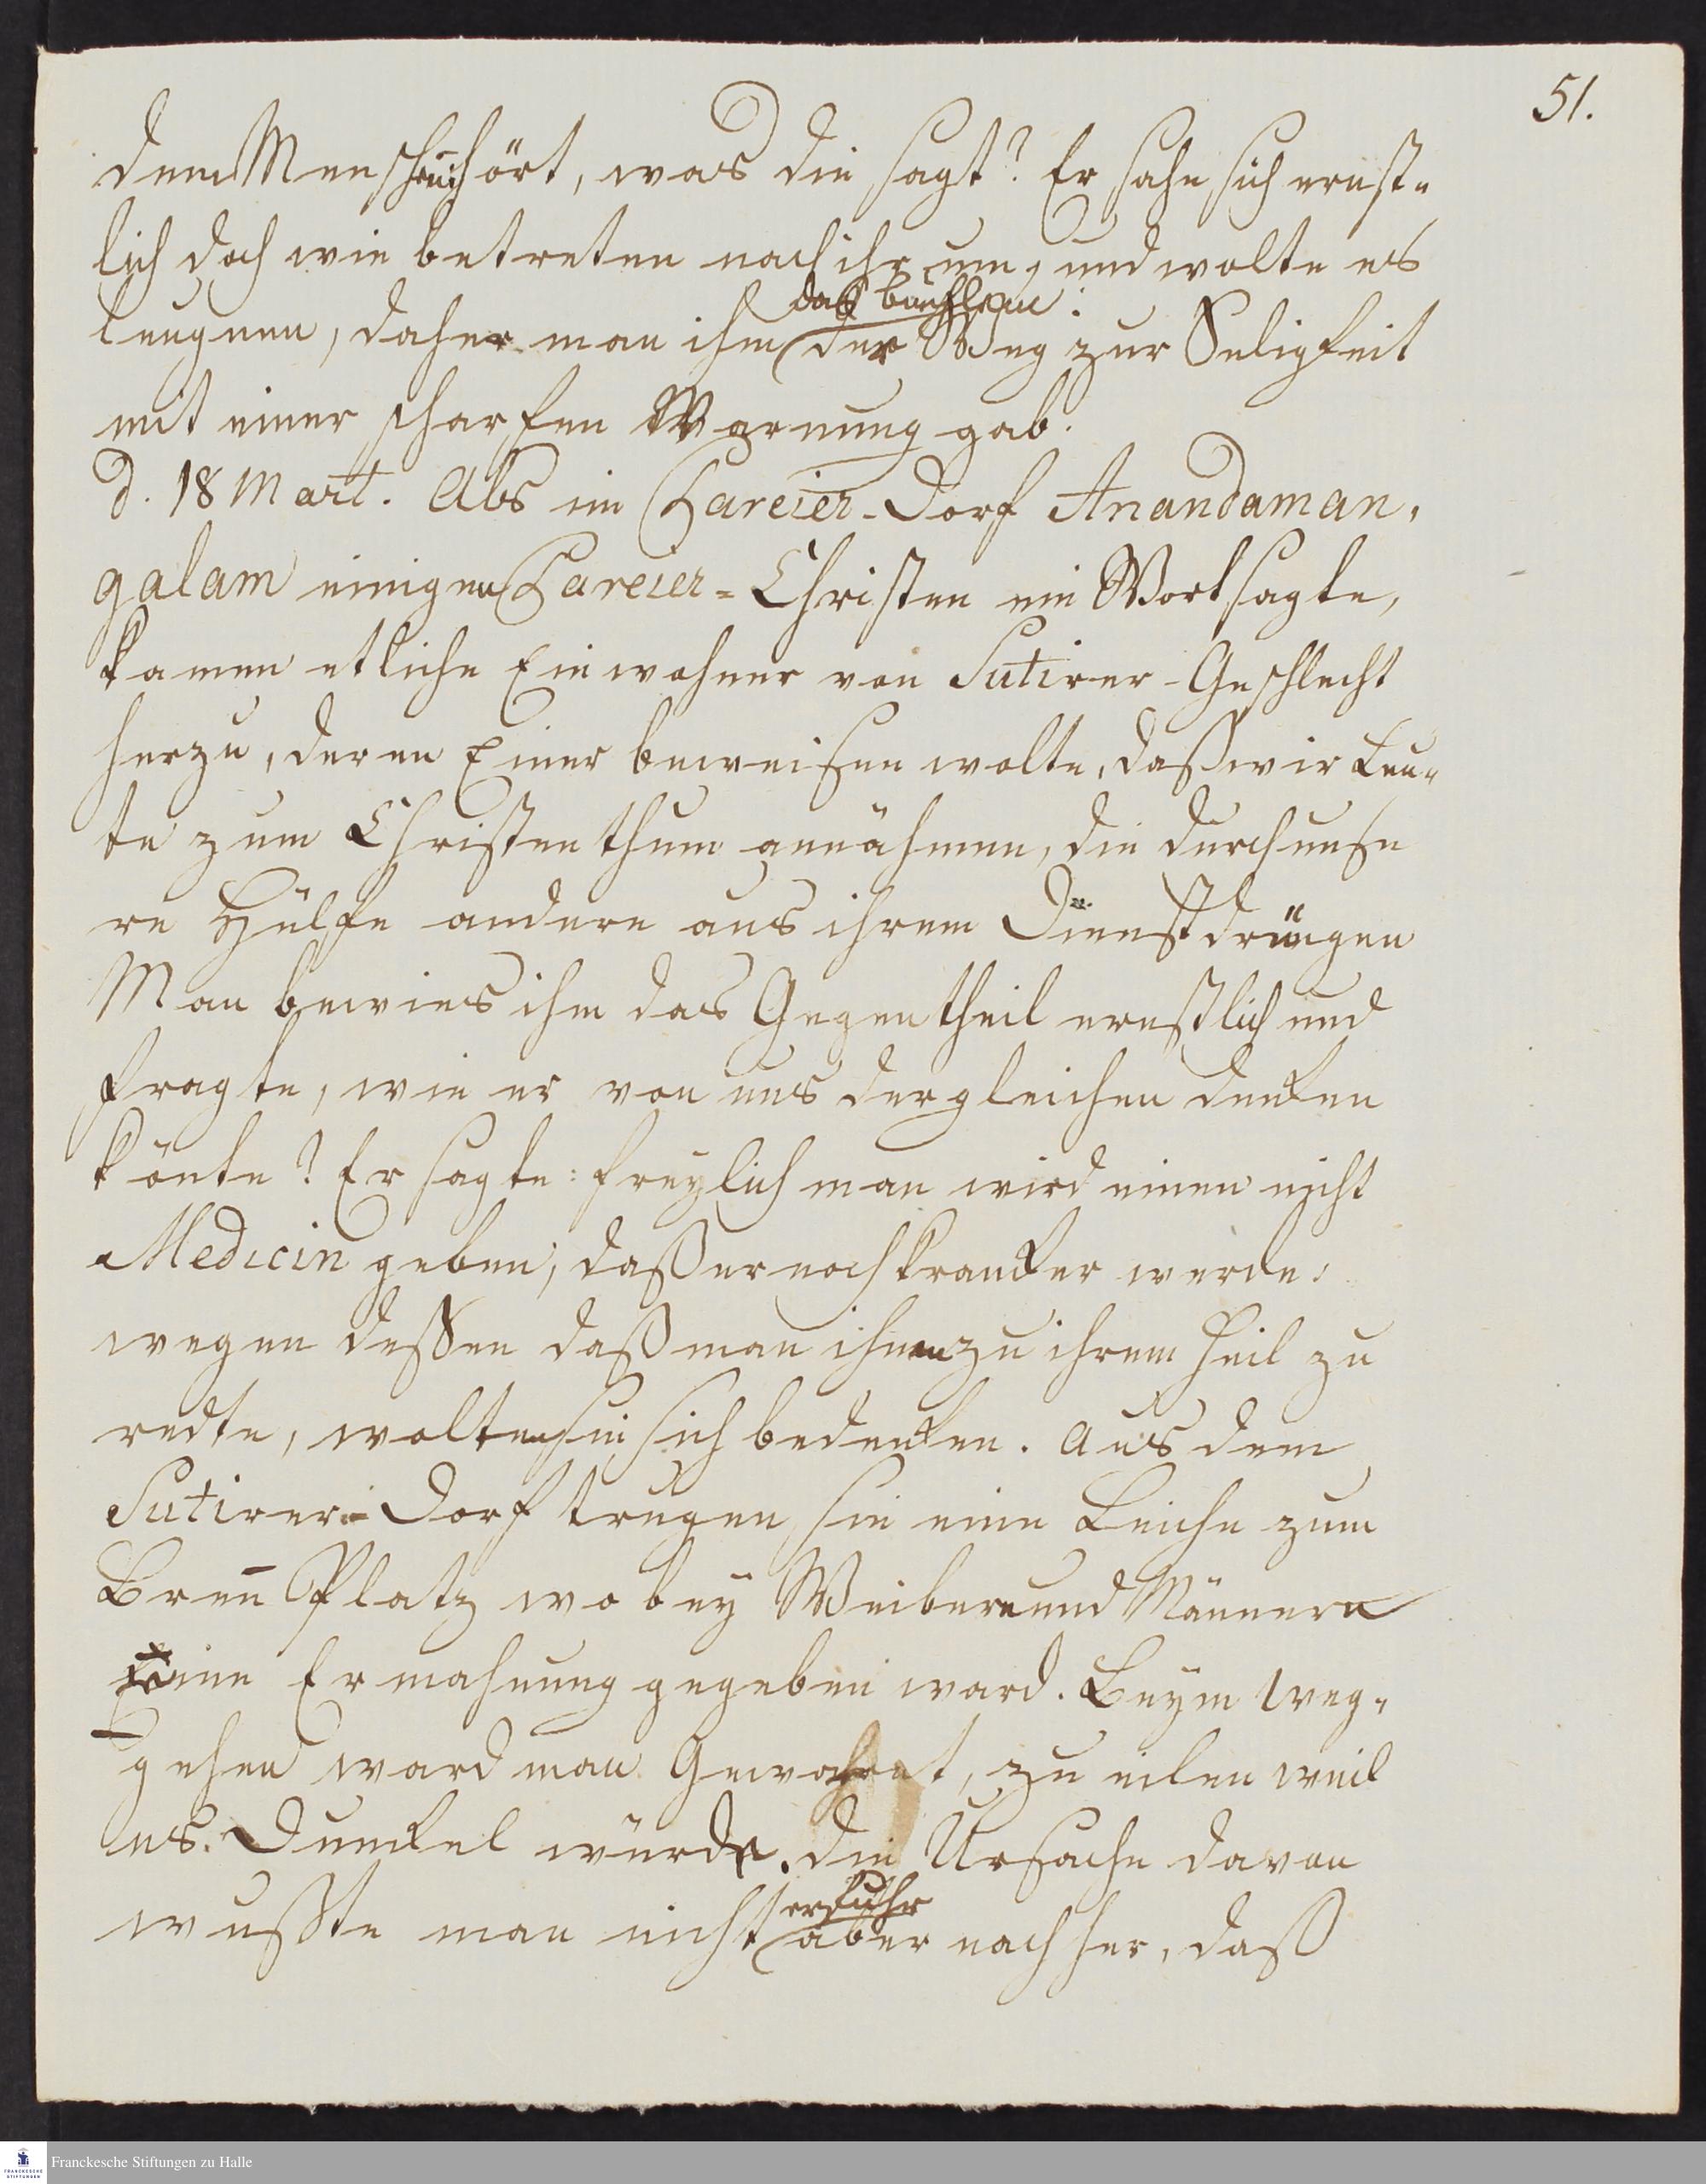 51.
dem Menschen hört, was die sagt? Er sahe sich ernst-
lich doch wie betreten nach ihr um, und wolte es
leugnen, daher man ihm das büchlein: der Weg zur Seligkeit
mit einer scharfen Warnung gab.
d. 18 Mart. Als im Pareier-Dorf Anandaman-
galam einigen Pareier-Christen ein Wort sagte,
kamen etliche Einwohner von Sutirer-Geschlecht
herzu, deren Einer beweisen wolte, daß wir Leu-
te zum Christenthum annähmen, die durch unse
re Hülfe andere aus ihrem Dienst drüngen
Man bewies ihm das Gegentheil ernstlich und
fragte, wie er von uns dergleichen dencken
könte? Er sagte: freylich man wird einen nicht
Medicin geben, daß er noch krancker werde:
wegen deßen daß man ihnen zu ihrem Heil zu
redte, wolten sie sich bedencken. Aus dem
Sutirer-Dorf trugen sie eine Leiche zum
Breñ Platz wobey Weibern und Männern
eine Ermahnung gegeben ward. Beym Weg-
gehen ward man Gewahrnt, zu eilen weil
es Dunckel würde. die Ursache davon
wußte man nicht erfuhr aber nachher, daß
Franckesche Stiftungen zu Halle
FRANCKESCHE
STIFTUNGEN